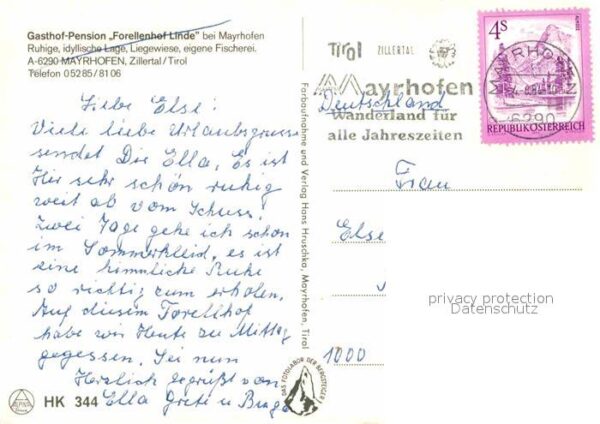 Gasthof-Pension „Forellenhof Linde" bei Mayrhofen
Ruhige, idyllische Lage, Liegewiese, eigene Fischerei.
A-6290 MAYRHOFEN, Zillertal/Tirol
Telefon 05285/8106
Liebe Else!
Viele liebe Urlaubsgrüsse
sendet Dir Ella. Es ist
Hir sehr schön ruhig
weit ab vom Schuss!
Zwei Tage gehe ich schon
im Sommerkleid, es ist
eine himmliche Ruhe
so richtig zum erholen.
Auf diesem Forellhof
habe wir Heute zu Mittag
gegessen. Sei nun
Herzlich gegrüßt von
Ella Grete u
HK 344
Farbaufnahme und Verlag Hans Hruschka, Mayrhofen, Tirol
DAS FOTOLABOR DER BERGSTEIGER
Tirol ZILLERTAL
Mayrhofen
Deutschland
Wanderland für
alle Jahreszeiten
4S
REPUBLIK ÖSTERREICH
MAYRHOFEN
6290
Frau
Else
privacy protection
Datenschutz
1000